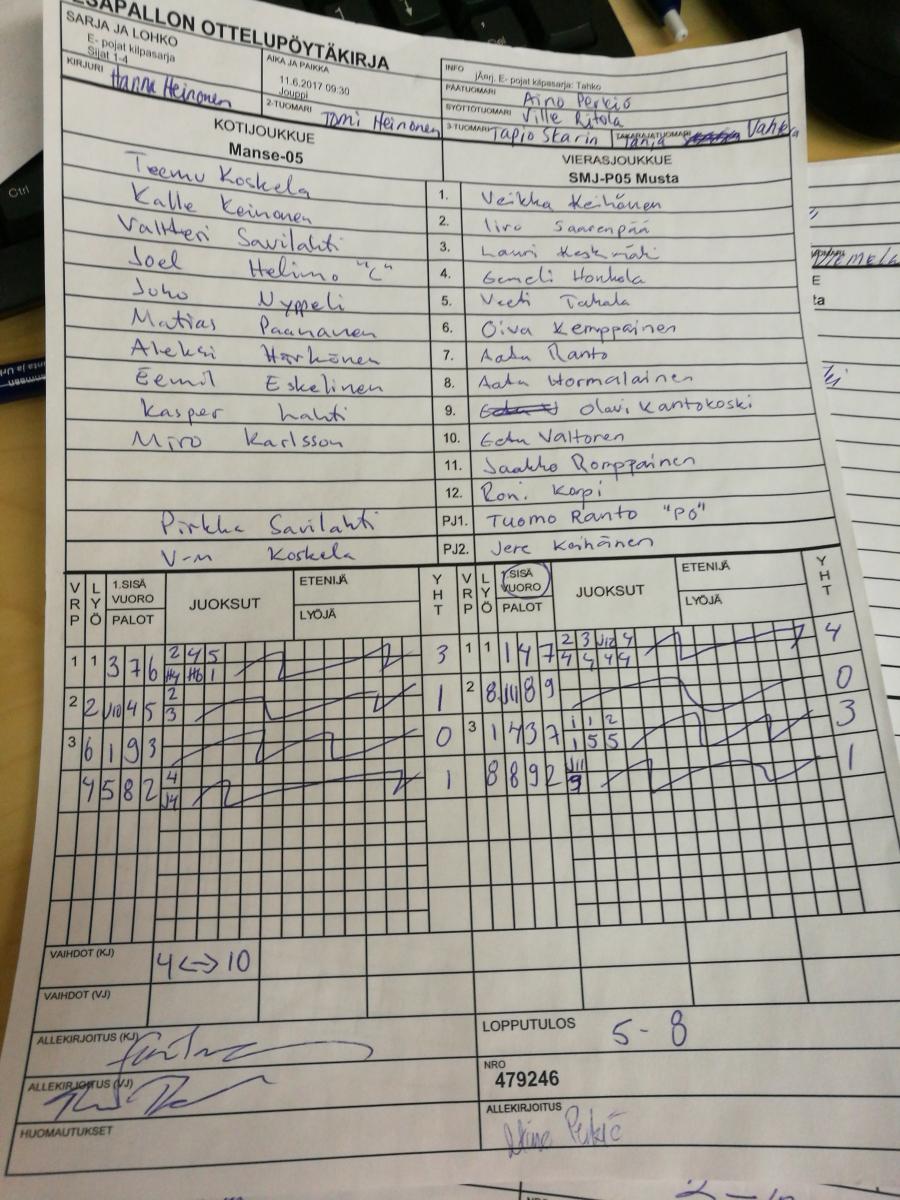 ESÄPALLON OTTELUPÖYTÄKIRJA
SARJA JA LOHKO
E- pojat kilpasarja
Sijat 1-4
AIKA JA PAIKKA
11.6.2017 09:30
Jouppi
INFO
jÄnj. E- pojat kilpasarja: Tahko
KIRJURI Hanna Heinonen
2-TUOMARI Tomi Heinonen
PÄÄTUOMARI Aino Perkiö
SYÖTTÖTUOMARI Ville Ritola
3-TUOMARI Tapio Skarin
TAKARAJATUOMARI Tanja
KOTIJOUKKUE
Manse-05
VIERASJOUKKUE
SMJ-P05 Musta
Teemu Koskela 1. Veikka Keihänen
Kalle Keinonen 2. Iiro Saarenpää
Valtteri Savilahti 3. Lauri
Joel Helimo "C" 4. Eemeli Honkola
Juho Nyppeli 5. Veeti Takala
Matias Paananen 6. Oiva Kemppainen
Aleksi Härkönen 7. Aatu Ranto
Eemil Eskelinen 8. Aatu Hormalainen
Kasper Lahti 9. Olavi Kantokoski
Miro Karlsson 10. Eetu Valtonen
11. Jaakko Romppainen
12. Roni Korpi
Pirkka Savilahti PJ1. Tuomo Ranto "PÖ"
V-M Koskela PJ2. Jere Keihänen
VRP LYÖ 1.SISÄ VUORO PALOT JUOKSUT ETENIJÄ LYÖJÄ YHT VRP LYÖ 1.SISÄ VUORO PALOT JUOKSUT ETENIJÄ LYÖJÄ YHT
1 1 3 7 6 2 4 5 3 1 1 1 4 7 2 3 J12 4 4
H4 H6 1 4 4 4 4
2 2 J10 4 5 2 1 2 8 J11 8 9 0
3
3 6 1 9 3 0 3 1 4 3 7 1 1 2 3
1 5 5
7 5 8 2 4 1 8 8 9 2 J11 1
J4 9
VAIHDOT (KJ) 4<->10
VAIHDOT (VJ)
ALLEKIRJOITUS (KJ)
LOPPUTULOS 5-8
ALLEKIRJOITUS (VJ)
NRO
479246
HUOMAUTUKSET
ALLEKIRJOITUS
Aino Perkiö
Ctrl